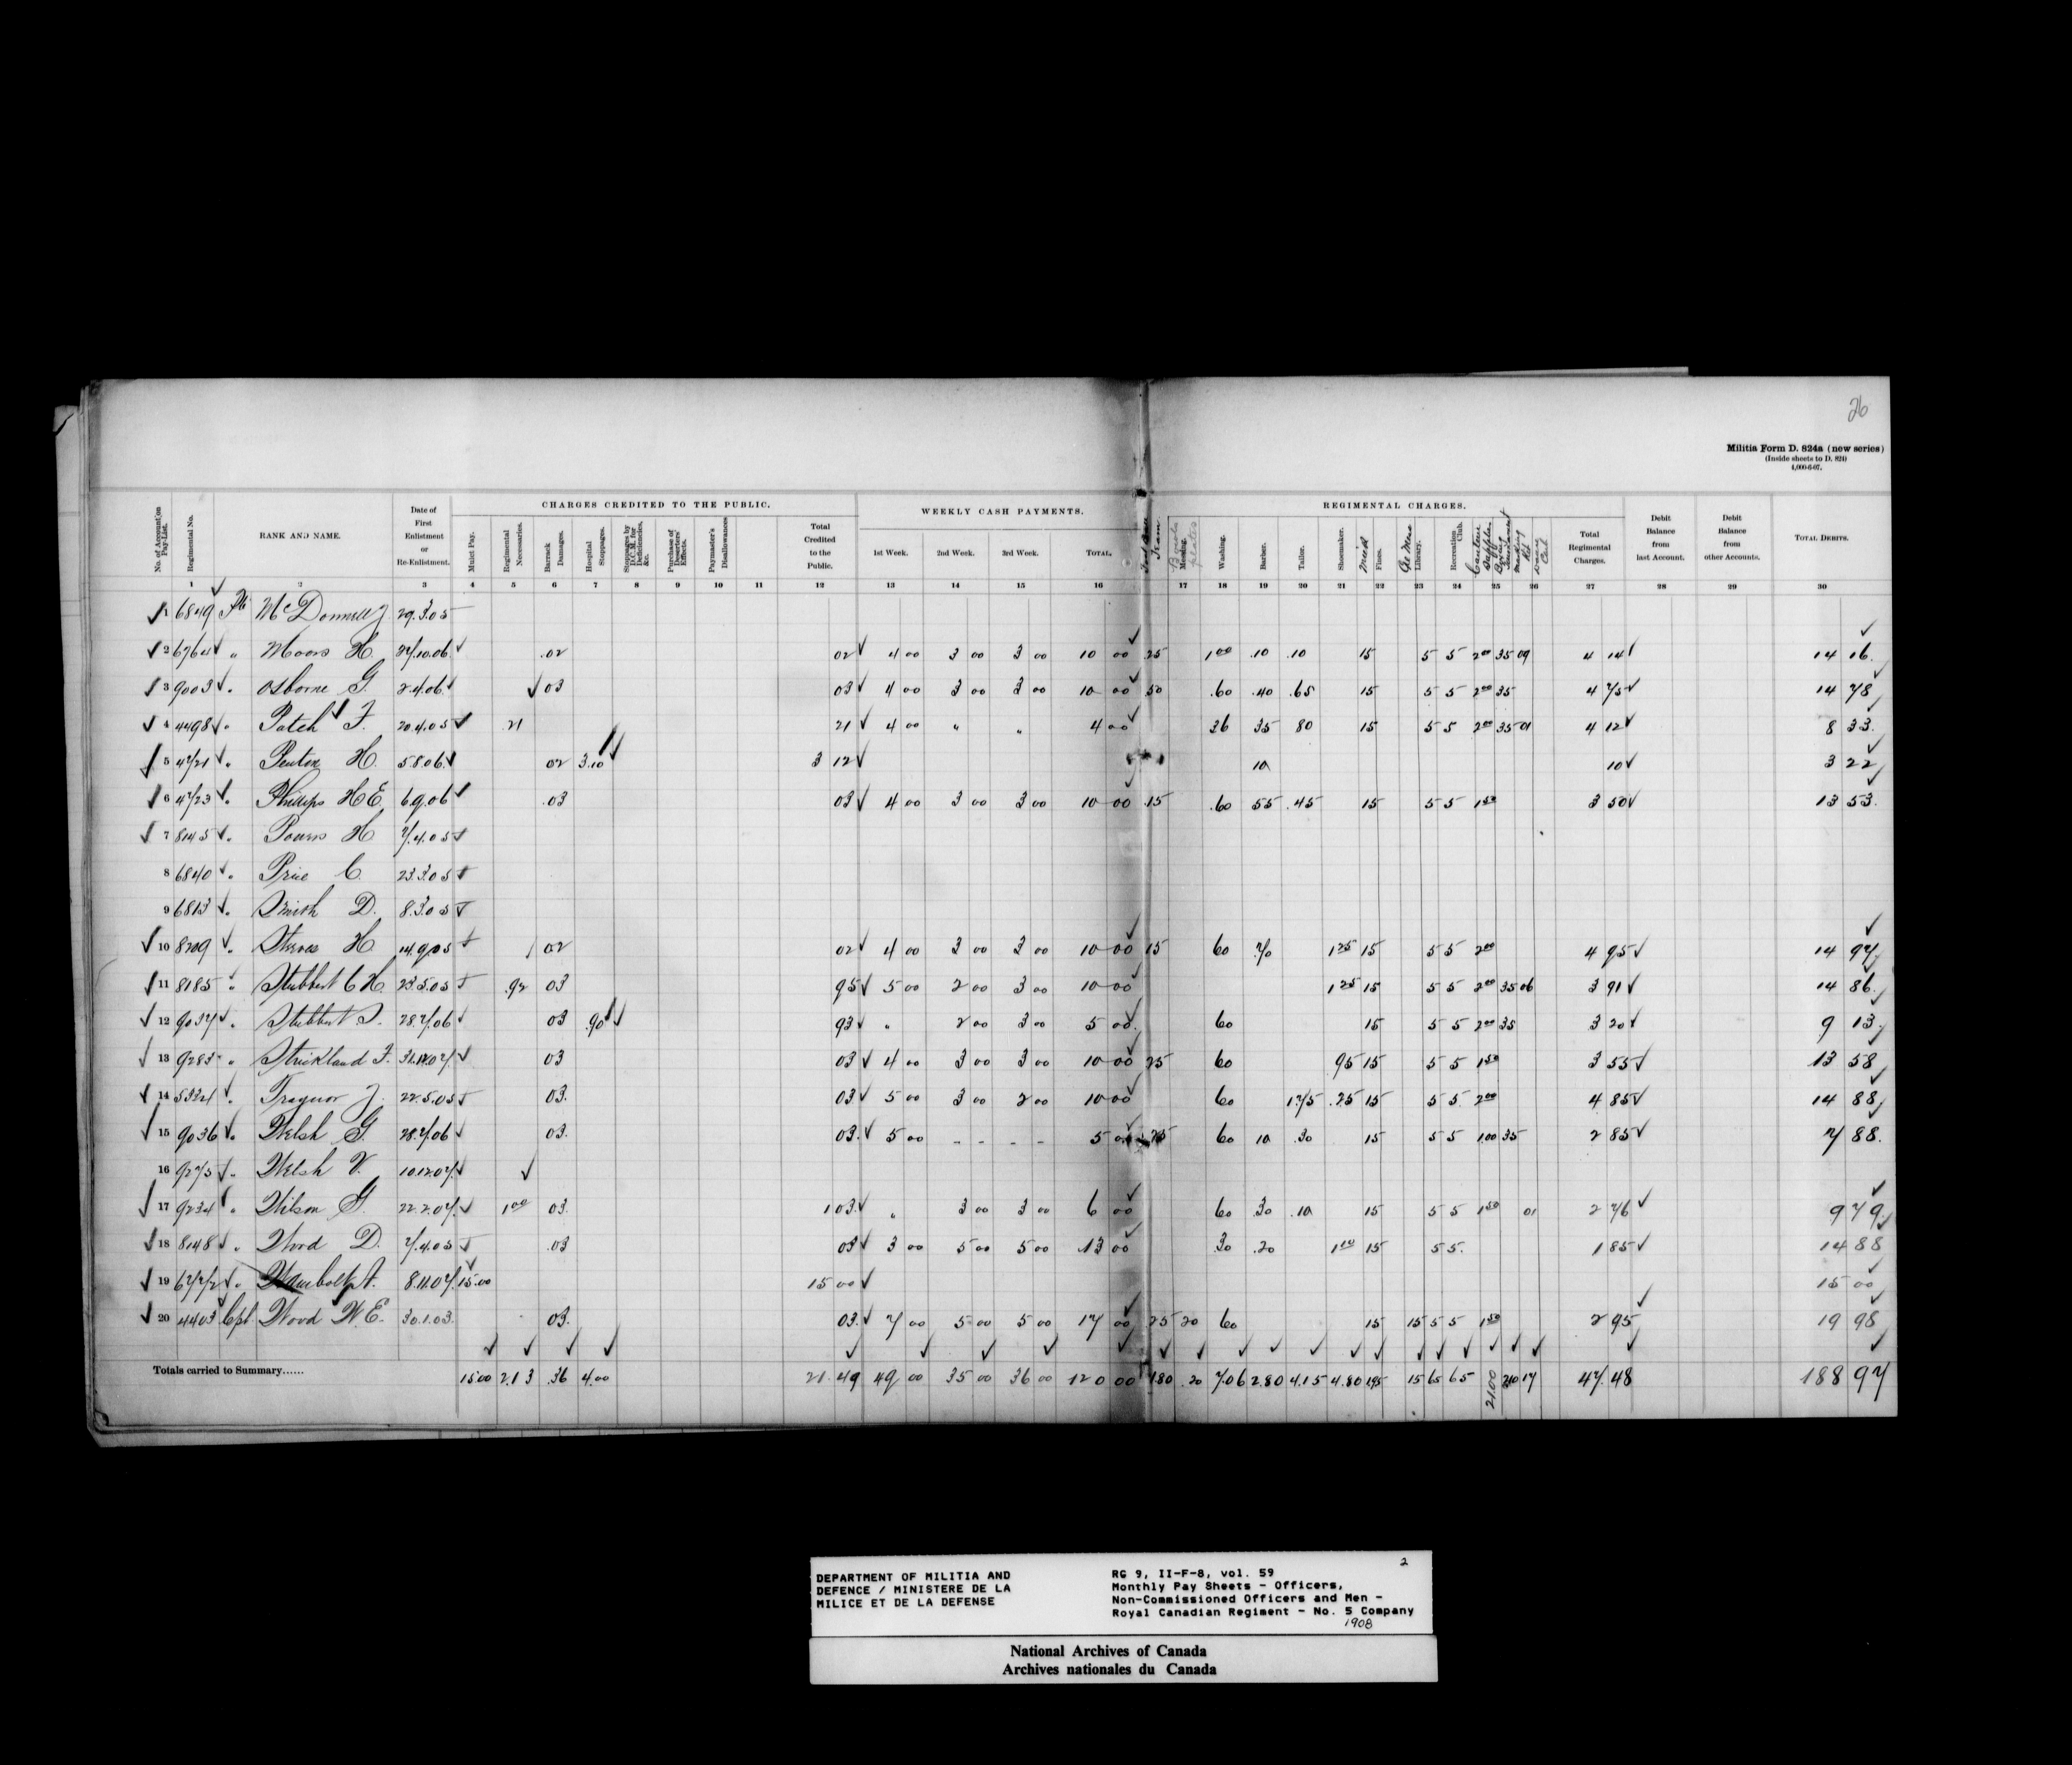 26
Militia Form D. 824a (new series)
(Inside sheets to D. 824)
4,000-6-07.
CHARGES CREDITED TO THE PUBLIC. WEEKLY CASH PAYMENTS. REGIMENTAL CHARGES.
No. of Account on Pay-List. Regimental No. RANK AND NAME. Date of First Enlistment or Re-Enlistment. Mulct Pay. Regimental Necessaries. Barrack Damages. Hospital Stoppages. Stoppages by D.C.M. for Deficiencies, &c. Purchase of Deserters' Effects. Paymaster's Disallowances Total Credited to the Public. 1st Week. 2nd Week. 3rd Week. TOTAL. Messing. Washing. Barber. Tailor. Shoemaker. Fines. Library. Recreation Club. Total Regimental Charges. Debit Balance from last Account. Debit Balance from other Accounts. TOTAL DEBITS.
1 2 3 4 5 6 7 8 9 10 11 12 13 14 15 16 17 18 19 20 21 22 23 24 25 26 27 28 29 30
1 6849 Pte McDonnell J 29.3.05
2 6764 " Moors H. 27.10.06 .02 02 4 00 3 00 3 00 10 00 25 1 00 .10 .10 15 5 5 2 00 35 09 4 14 14 16
3 9003 " Osborne G. 2.4.06 03 03 4 00 3 00 3 00 10 00 50 .60 .40 .65 15 5 5 2 00 35 4 75 14 78
4 4498 " Patch F. 20.4.05 .21 21 4 00 " " 4 00 36 35 80 15 5 5 2 00 35 01 4 12 8 33
5 4721 " Penton H. 5.8.06 02 3.10 3 12 10 10 3 22
6 4723 " Phillips H E 6.9.06 .03 03 4 00 3 00 3 00 10 00 .15 .60 55 .45 15 5 5 1 50 3 50 13 53
7 8145 " Powers H 7.4.05
8 6840 " Price C. 23.3.05
9 6813 " Smith D. 8.3.05
10 8209 " Steeves H 14.9.05 02 02 4 00 3 00 3 00 10 00 15 60 .70 1 25 15 5 5 2 00 4 95 14 97
11 8185 " Stubbert C H. 23.5.05 .92 03 95 5 00 2 00 3 00 10 00 1 25 15 5 5 2 00 35 06 3 91 14 86
12 9037 " Stubbert S. 28.7.06 03 .90 93 " 2 00 3 00 5 00 60 15 5 5 2 00 35 3 20 9 13
13 9283 " Strickland F. 03 03 4 00 3 00 3 00 10 00 25 60 95 15 5 5 1 50 3 55 13 58
14 5324 " Traynor J. 22.5.05 03. 03 5 00 3 00 2 00 10 00 60 1.75 .25 15 5 5 2 00 4 85 14 88
15 9036 " Welsh G. 28.7.06 03. 03. 5 00 - - - - 5 00 25 60 10 .30 15 5 5 1 00 35 2 85 7 88.
16 9275 " Welsh V. 10.12.07
17 9234 " Wilson G. 22.2.07 1 00 03. 1 03. " 3 00 3 00 6 00 60 .30 .10 15 5 5 1 50 01 2 76 9 79
18 8148 " Wood D. 7.4.05 .03 03 3 00 5 00 5 00 13 00 .30 .20 1 10 15 5 5. 1 85 14 88
19 6772 " 8.11.07 15.00 15 00 15 00
20 4403 Cpl Wood W E. 30.1.03. 03. 03. 7 00 5 00 5 00 17 00 25 20 60 15 15 5 5 1 50 2 95 19 98
Totals carried to Summary...... 15 00 2.13 .36 4.00 21 49 49 00 35 00 36 00 120 00 180 .20 7.06 2.80 4.15 4.80 1.95 15 65 65 21.00 210 17 47.48 188 97
DEPARTMENT OF MILITIA AND
DEFENCE / MINISTERE DE LA
MILICE ET DE LA DEFENSE
2
RG 9, II-F-8, vol. 59
Monthly Pay Sheets - Officers,
Non-Commissioned Officers and Men -
Royal Canadian Regiment - No. 5 Company
1908
National Archives of Canada
Archives nationales du Canada